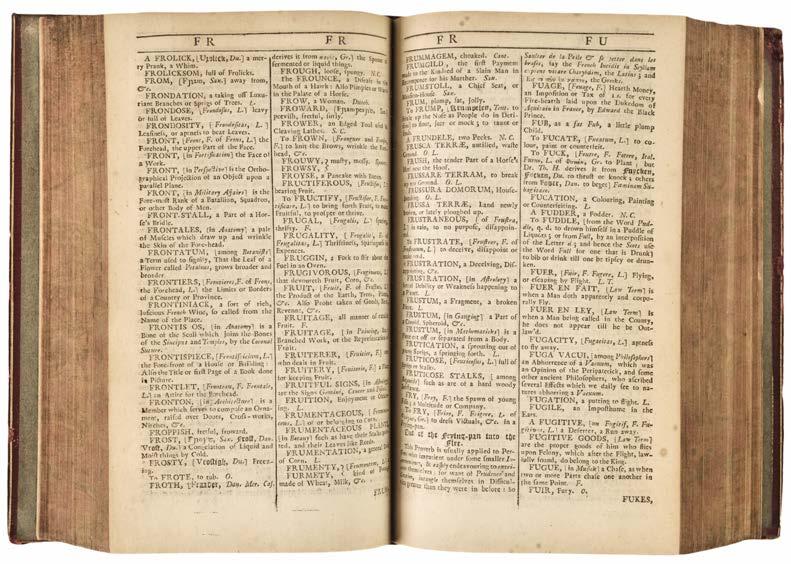 FR
A FROLICK, [Urolick, Du.] a mer-
ry Prank, a Whim.
FROLICKSOM, full of Frolicks.
FROM, Sax.] away from,
&c.
FRONDATION, a taking off Luxu-
riant Branches or Sprigs of Trees. L.
FRONDOSE, [Frondosus, L.] leavy
or full of Leaves.
FRONDOSITY, [Frondositas, L.]
Leafiness, or aptness to bear Leaves.
FRONT, [Frons, F. of Frons, L.] the
Forehead, the upper Part of the Face.
FRONT, [in Fortification] the Face of
a Work.
FRONT, [in Perspective] is the Ortho-
graphical Projection of an Object upon a
parallel Plane.
FRONT, [in Military Affairs] is the
Fore-most Rank of a Batallion, Squadron,
or other Body of Men.
FRONT-STALL, a Part of a Hor-
se's Bridle.
FRONTALES, [in Anatomy] a pair
of Muscles which draw up and wrinkle
the Skin of the Fore-head.
FRONTATUM, [among Botanists]
a Term used to signify, That the Leaf of a
Flower called Petalum, grows broader and
broader.
FRONTIERS, [Frontieres, F. of Frons,
the Forehead, L.] the Limits or Borders
of a Country or Province.
FRONTINIACK, a sort of rich,
luscious French Wine, so called from the
Name of the Place.
FRONTIS OS, [in Anatomy] is a
Bone of the Scull which Joins the Bones
of the Sinciput and Temples, by the Coronal
Suture.
FRONTISPIECE, [Frontispicium, L.]
the Fore-front of a House or Building:
Also the Title or first Page of a Book done
in Picture.
FRONTLET, [Fronteau, F. Frontale,
L.] an Attire for the Forehead.
FRONTON, [in Architecture] is a
Member which serves to compose an Orna-
ment, raised over Doors, Cross-works,
Nitches, &c.
FROPPISH, fretful, froward.
FROST, Sax. Frost, Dan.
Vrost, Du.] a Congelation of Liquid and
Moist things by Cold.
FROSTY, [Vrostigh, Du.] Free-
zing.
To FROTE, to rub. O.
FROTH, Dan. Mer. Cas.
FR
derives it from Gr.] the Spume of
fermented or liquid things.
FROUGH, loose, spungy. N. C.
The FROUNCE, a Disease in the
Mouth of a Hawk: Also Pimples or Warts
in the Palate of a Horse.
FROW, a Woman. Dutch.
FROWARD, peevish,
fretful, surly.
FROWER, an Edged Tool used in
Cleaving Lathes. S. C.
To FROWN, to knit the Brows, wrinkle the Fore-
head, &c.
FROUWY, musty, mossy. Spenc.
FROWSY,
FROYSE, a Pancake with Bacon.
FRUCTIFEROUS,
bearing Fruit.
To FRUCTIFY, [Fructifier, F.
L.] to bring forth Fruit, to make
Fruitful, to prosper or thrive.
FRUGAL, [Frugalis, L.]
thrifty. F.
FRUGALITY, [Frugalité, F. of
Frugalitas, L.] Thriftiness, Sparingness in
Expences.
FRUGGIN, a Fork to stir about the
Fuel in an Oven.
FRUGIVOROUS, [Frugivorus, L.]
that devoureth Fruit, Corn, &c.
FRUIT, [Fruit, F. of Fructus, L.]
the Product of the Earth, Trees, Plants,
&c. Also Profit taken of Goods, Rent,
Revenue, &c.
FRUITAGE, all manner of eatable
Fruit. F.
FRUITAGE, [in Painting,
Branched Work, or the Representation of
Fruit.
FRUITERER, [Fruitier, F.] one
who deals in Fruit.
FRUITERY, [Fruiterie, F.] a Place
for keeping Fruit.
FRUITFUL SIGNS, [in Astrology]
are the Signs Gemini, Cancer and Pisces.
FRUITION, Enjoyment or Obtain-
ing. L.
FRUMENTACEOUS,
L.] of or belonging to Corn.
FRUMENTACEOUS PLANTS,
[in Botany] such as have their Stalks
and their Leaves like Reeds.
FRUMENTATION, a general Dole
of Corn. L.
FRUMENTY, [Frumentum, L.]
FURMETY, a kind of
made of Wheat, Milk, &c.
FR
FRUMMAGEM, choaked. Cant.
FRUMGILD, the first Payment
made to the Kindred of a Slain Man in
Recompence for his Murther. Sax.
FRUMSTOLL, a Chief Seat, or
House. Sax.
FRUM, plump, fat, jolly.
To FRUMP, Teut. to
up the Nose as People do in Deri-
to flout, jeer or mock; to taunt or
FRUNDELE, two Pecks. N. C.
FRUSCA TERRÆ, untilled, waste
Ground. O. L.
FRUSH, the tender Part of a Horse's
next the Hoof.
FRUSSARE TERRAM, to break
up new Ground. O. L.
FRUSSURA DOMORUM, House-
breaking. O. L.
FRUSSA TERRÆ, Land newly
broken, or lately ploughed up.
FRUSTRANEOUS,
L.] in vain, to no purpose, disappoin-
To FRUSTRATE, [Frustrer, F. of
L.] to deceive, disappoint or
make void.
FRUSTRATION, a Deceiving, Dis-
appointing, &c.
FRUSTRATION, [in Astrology] a
Debility or Weakness happening to
a Planet. L.
FRUSTUM, a Fragment, a broken
Piece. L.
FRUSTUM, [in Gauging] a Part of
a Conoid, Spheroid, &c.
FRUSTUM, [in Mathematicks] is a
Piece cut off or separated from a Body.
FRUTICATION, a sprouting out of
young Sprigs, a springing forth. L.
FRUTICOSE, [Fruticosus, L.] full of
Sprigs or Stalks.
FRUTICOSE STALKS, [among
Botanists] such as are of a hard woody
Substance.
FRY, [Fray, F.] the Spawn of young
Fish; a Multitude or Company.
To FRY, [Frire, F. Frigere, L. of
Gr.] to dress Victuals, &c. in a
Frying-pan.
Out of the Frying-pan into the
Fire.
This Proverb is usually applied to Per-
sons who impatient under some smaller In-
conveniency, & rashly endeavouring to extri-
cate themselves, for want of Prudence and
Caution, intangle themselves in Difficul-
ties greater than they were in before: So
FU
Sauter de la Poile & se jetter dans les
brases, say the French Incidit in Scyllam
cupiens vitare Charybdim, the Latins; and
the Greeks.
FUAGE, [Fouage, F.] Hearth Money,
an Imposition or Tax of 1 s. for every
Fire-hearth laid upon the Dukedom of
Aquitain in France, by Edward the Black
Prince.
FUB, as a fat Fub, a little plump
Child.
To FUCATE, [Fucatum, L.] to co-
lour, paint or counterfeit.
To FUCK, [Foutre, F. Fottere, Ital.
Futuo, L. of Gr. to Plant; but
Dr. Th. H. derives it from Fuycken,
Du. to thrust or knock; others
from Dan. to beget] Fœminam Su-
bagitare.
FUCATION, a Colouring, Painting
or Counterfeiting. L.
A FUDDER, a Fodder. N. C.
To FUDDLE, (from the Word Pud-
dle, q. d. to drown himself in a Puddle of
Liquors; or from Full, by an interposition
of the Letter d; and hence the Scots use
the Word Full for one that is Drunk)
to bib or drink till one be tipsey or drun-
ken.
FUER, [Fuir, F. Fugere, L.] Flying,
or escaping by Flight. L. T.
FUER EN FAIT, [Law Term] is
when a Man doth aparently and corpo-
rally Fly.
FUER EN LEY, [Law Term] is
when a Man being called in the County,
he does not appear till he be Out-
law'd.
FUGACITY, [Fugacitas, L.] aptness
to fly away.
FUGA VACUI, [among Philosophers]
an Abhorrence of a Vacuum, which was
an Opinion of the Peripateticks, and some
other ancient Philosophers, who ascribed
several Effects which we daily see to na-
tures abhorring a Vacuum.
FUGATION, a putting to flight. L.
FUGILE, an Imposthume in the
Ears.
FUGITIVE, [un Fugitif, F. Fu-
gitivus, L.] a Deserter, a Run away.
FUGITIVE GOODS, [Law Term]
are the proper Goods of him who flies
upon Felony, which after the Flight, law-
fully found, do belong to the King.
FUGUE, [in Musick] a Chase, as when
two or more Parts chase one another in
the same Point. F.
FUIR, Fury. O.
FUKES,